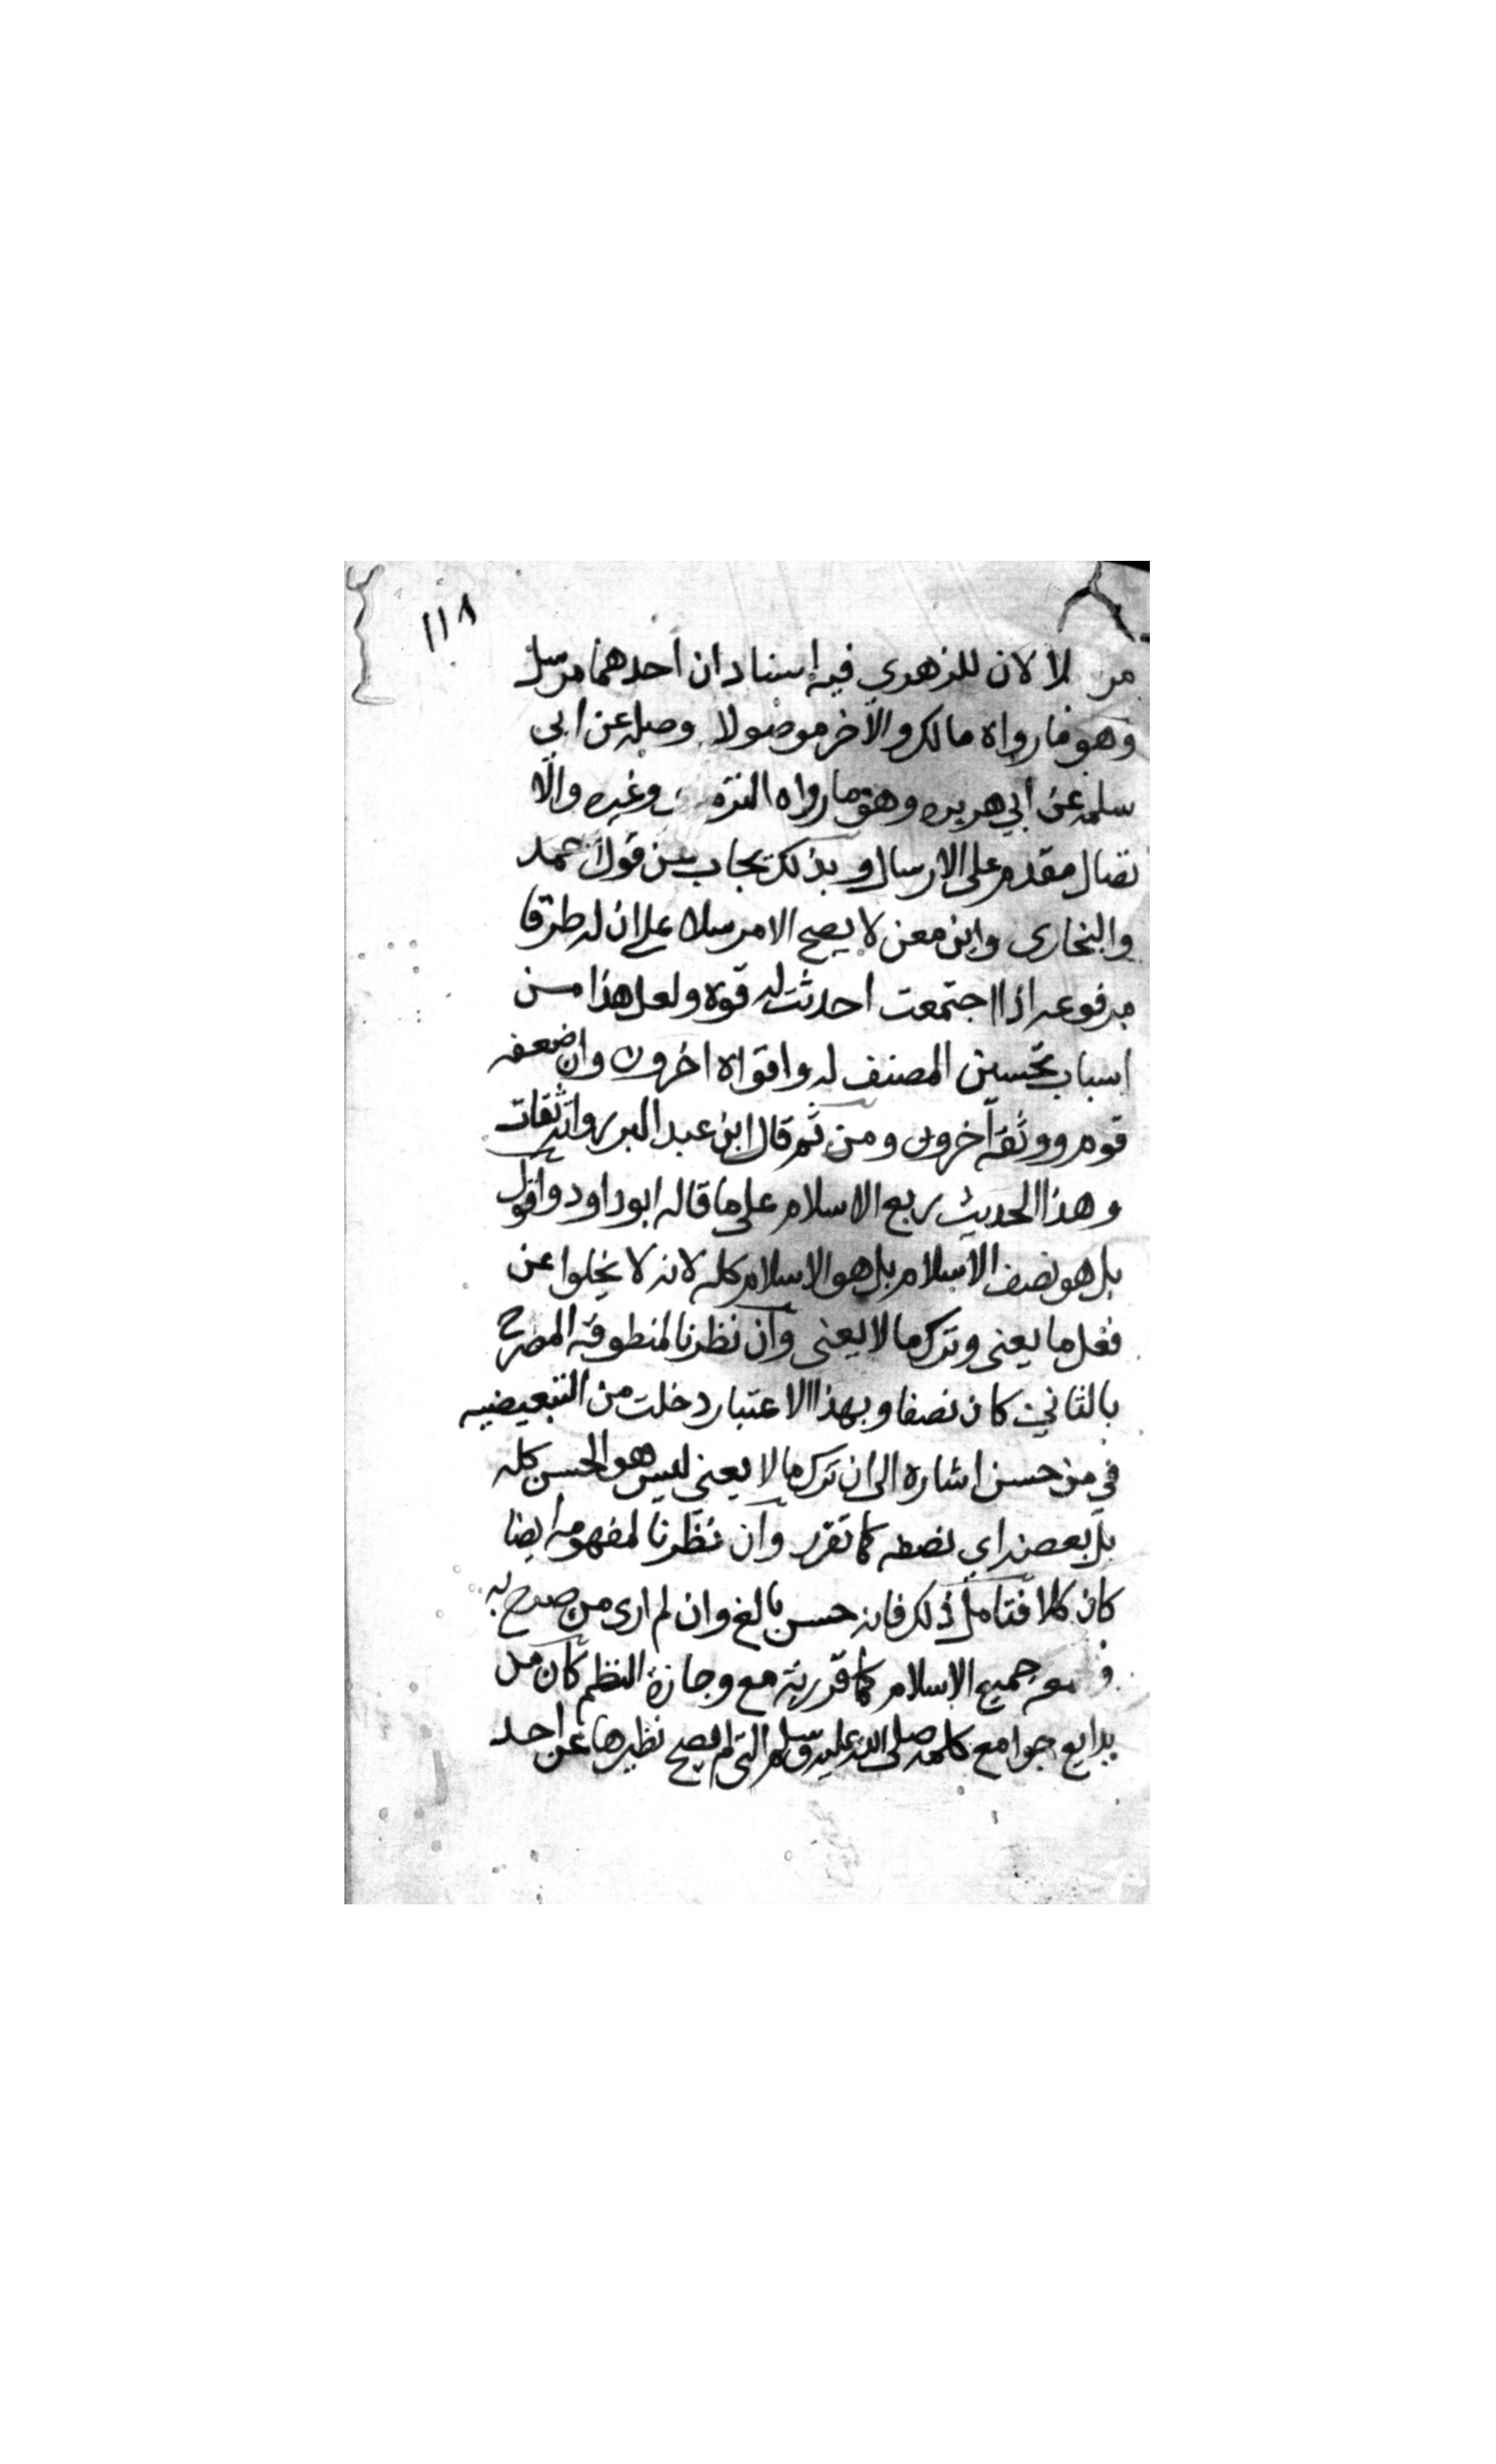 ١١٨
مرسلا لان للزهري فيه اسنادان احدهما مرسل
وهو ما رواه مالك والآخر موصولا وصله عن ابي
سلمه عن ابي هريره وهو ما رواه الترمذي وغيره والا
تصال مقدم على الارسال وبذلك يجاب عن قول احمد
والبخارى وابن معن لا يصح الا مرسلا على ان له طرقا
مرفوعه اذا اجتمعت احدثت له قوة ولعل هذا من
اسباب تحسين المصنف له وافواه اخرون وان ضعفه
قوم ووثقه آخرون ومن ثم قال ابن عبد البر رواته ثقات
وهذا الحديث ربع الاسلام على ما قاله ابو داود واقول
بل هو نصف الاسلام بل هو الاسلام كله لانه لا يخلوا عن
فعل ما يعنى وترك ما لا يعنى وان نظرنا لمنطوقه المصرح
بالثاني كان نصفا وبهذا الاعتبار دخلت من التبعيضيه
في من حسن اشاره الى ان ترك ما لا يعنى ليس هو الحسن كله
بل بعضه اي نصفه كما تقرر وان نظرنا لمفهومه ايضا
كان كلا فتامل ذلك فانه حسن بالغ وان لم ارى من صرح به
جميع الاسلام كما قررته مع وجازة النظم كان من
بدايع جوامع كلمه صلى الله عليه وسلم التى لم يصح نظيرها عن احد